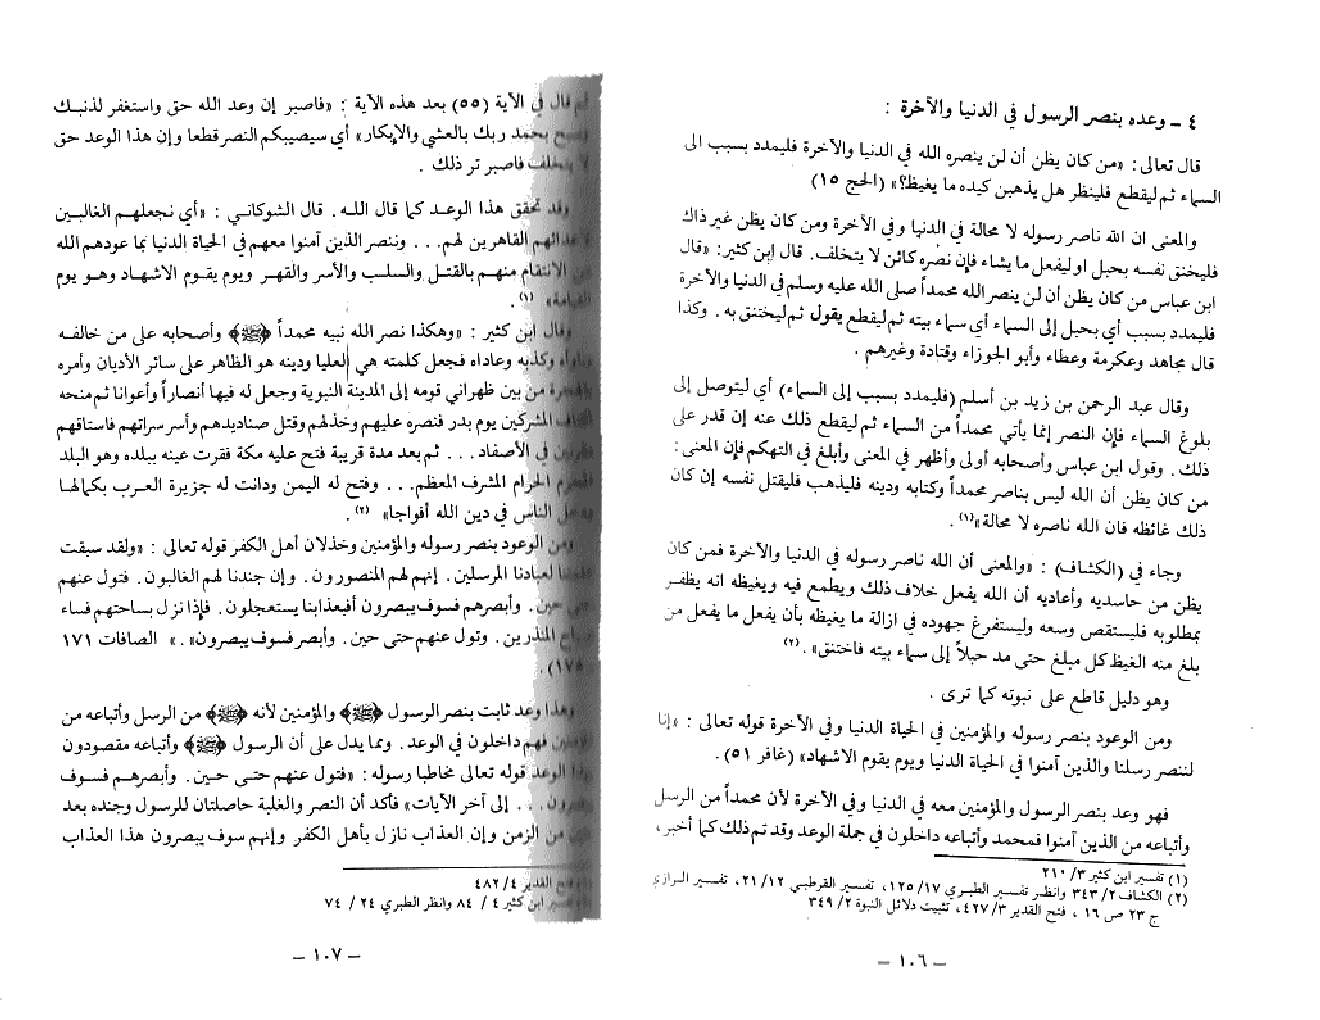 ٤ ـ وعده بنصر الرسول في الدنيا والآخرة :
قال تعالى: «من كان يظن أن لن ينصره الله في الدنيا والآخرة فليمدد بسبب الى
السماء ثم ليقطع فلينظر هل يذهبن كيده ما يغيظ؟» (الحج ١٥)
والمعنى ان الله ناصر رسوله لا محالة في الدنيا وفي الآخرة ومن كان يظن غير ذاك
فليخنق نفسه بحبل او ليفعل ما يشاء فإن نصره كائن لا يتخلف. قال ابن كثير: «قال
ابن عباس من كان يظن أن لن ينصر الله محمداً صلى الله عليه وسلم في الدنيا والآخرة
فليمدد بسبب أي بحبل إلى السماء أي سماء بيته ثم ليقطع يقول ثم ليختنق به. وكذا
قال مجاهد وعكرمة وعطاء وأبو الجوزاء وقتادة وغيرهم .
وقال عبد الرحمن بن زيد بن أسلم (فليمدد بسبب إلى السماء) أي ليتوصل إلى
بلوغ السماء فإن النصر إنما يأتي محمداً من السماء ثم ليقطع ذلك عنه إن قدر على
ذلك. وقول ابن عباس وأصحابه أولى وأظهر في المعنى وأبلغ في التهكم فإن المعنى:
من كان يظن أن الله ليس بناصر محمداً وكتابه ودينه فليذهب فليقتل نفسه إن كان
ذلك غائظه فان الله ناصره لا محالة»(١) .
وجاء في (الكشاف) : «والمعنى أن الله ناصر رسوله في الدنيا والآخرة فمن كان
يظن من حاسديه وأعاديه أن الله يفعل خلاف ذلك ويطمع فيه ويغيظه انه يظفر
بمطلوبه فليستقص وسعه وليستفرغ جهوده في ازالة ما يغيظه بأن يفعل ما يفعل من
بلغ منه الغيظ كل مبلغ حتى مد حبلاً إلى سماء بيته فاختنق». (٢)
وهو دليل قاطع على نبوته كما ترى .
ومن الوعود بنصر رسوله والمؤمنين في الحياة الدنيا وفي الآخرة قوله تعالى : «إنا
لننصر رسلنا والذين آمنوا في الحياة الدنيا ويوم يقوم الاشهاد» (غافر ٥١).
فهو وعد بنصر الرسول والمؤمنين معه في الدنيا وفي الآخرة لأن محمداً من الرسل
وأتباعه من الذين آمنوا فمحمد وأتباعه داخلون في جملة الوعد وقد تم ذلك كما أخبر،
(١) تفسير ابن كثير ٣/ ٢١٠
(٢) الكشاف ٢/ ٣٤٣ وانظر تفسير الطبري ١٧/ ١٢٥، تفسير القرطبي ١٢/ ٢١، تفسير الرازي
ج ٢٣ ص ١٦ ، فتح القدير ٣/ ٤٢٧، تثبيت دلائل النبوة ٢/ ٣٤٩
ـ ١٠٦ ـ
ثم قال في الآية (٥٥) بعد هذه الآية : «فاصبر إن وعد الله حق واستغفر لذنبك
وسبح بحمد ربك بالعشي والإبكار» أي سيصيبكم النصر قطعا وإن هذا الوعد حق
لا يتخلف فاصبر تر ذلك .
وقد تحقق هذا الوعد كما قال الله. قال الشوكاني : «أي نجعلهم الغالبين
لأعدائهم القاهرين لهم... وننصر الذين آمنوا معهم في الحياة الدنيا بما عودهم الله
من الانتقام منهم بالقتل والسلب والأسر والقهر ويوم يقوم الاشهاد وهو يوم
القيامة» (١).
وقال ابن كثير : «وهكذا نصر الله نبيه محمداً ﴿ﷺ﴾ وأصحابه على من خالفه
وناوأه وكذبه وعاداه فجعل كلمته هي العليا ودينه هو الظاهر على سائر الأديان وأمره
بالهجرة من بين ظهراني قومه إلى المدينة النبوية وجعل له فيها أنصاراً وأعوانا ثم منحه
أكتاف المشركين يوم بدر فنصره عليهم وخذلهم وقتل صناديدهم وأسر سراتهم فاستاقهم
مقرنين في الأصفاد... ثم بعد مدة قريبة فتح عليه مكة فقرت عينه ببلده وهو البلد
المحرم الحرام المشرف المعظم... وفتح له اليمن ودانت له جزيرة العرب بكمالها
ودخل الناس في دين الله أفواجا» (٢).
ومن الوعود بنصر رسوله والمؤمنين وخذلان أهل الكفر قوله تعالى : «ولقد سبقت
كلمتنا لعبادنا المرسلين. إنهم لهم المنصورون. وإن جندنا لهم الغالبون. فتول عنهم
حتى حين. وأبصرهم فسوف يبصرون أفبعذابنا يستعجلون. فإذا نزل بساحتهم فساء
صباح المنذرين. وتول عنهم حتى حين. وأبصر فسوف يبصرون». » الصافات ١٧١
١٧٥).
وهذا وعد ثابت بنصر الرسول ﴿ﷺ﴾ والمؤمنين لأنه ﴿ﷺ﴾ من الرسل وأتباعه من
المؤمنين فهم داخلون في الوعد. ومما يدل على أن الرسول ﴿ﷺ﴾ وأتباعه مقصودون
بهذا الوعد قوله تعالى مخاطبا رسوله : «فتول عنهم حتى حين. وأبصرهم فسوف
يبصرون... إلى آخر الآيات» فأكد أن النصر والغلبة حاصلتان للرسول وجنده بعد
حين من الزمن وإن العذاب نازل بأهل الكفر وإنهم سوف يبصرون هذا العذاب
(١) فتح القدير ٤/ ٤٨٢
(٢) تفسير ابن كثير ٤ / ٨٤ وانظر الطبري ٢٤ / ٧٤
ـ ١٠٧ ـ